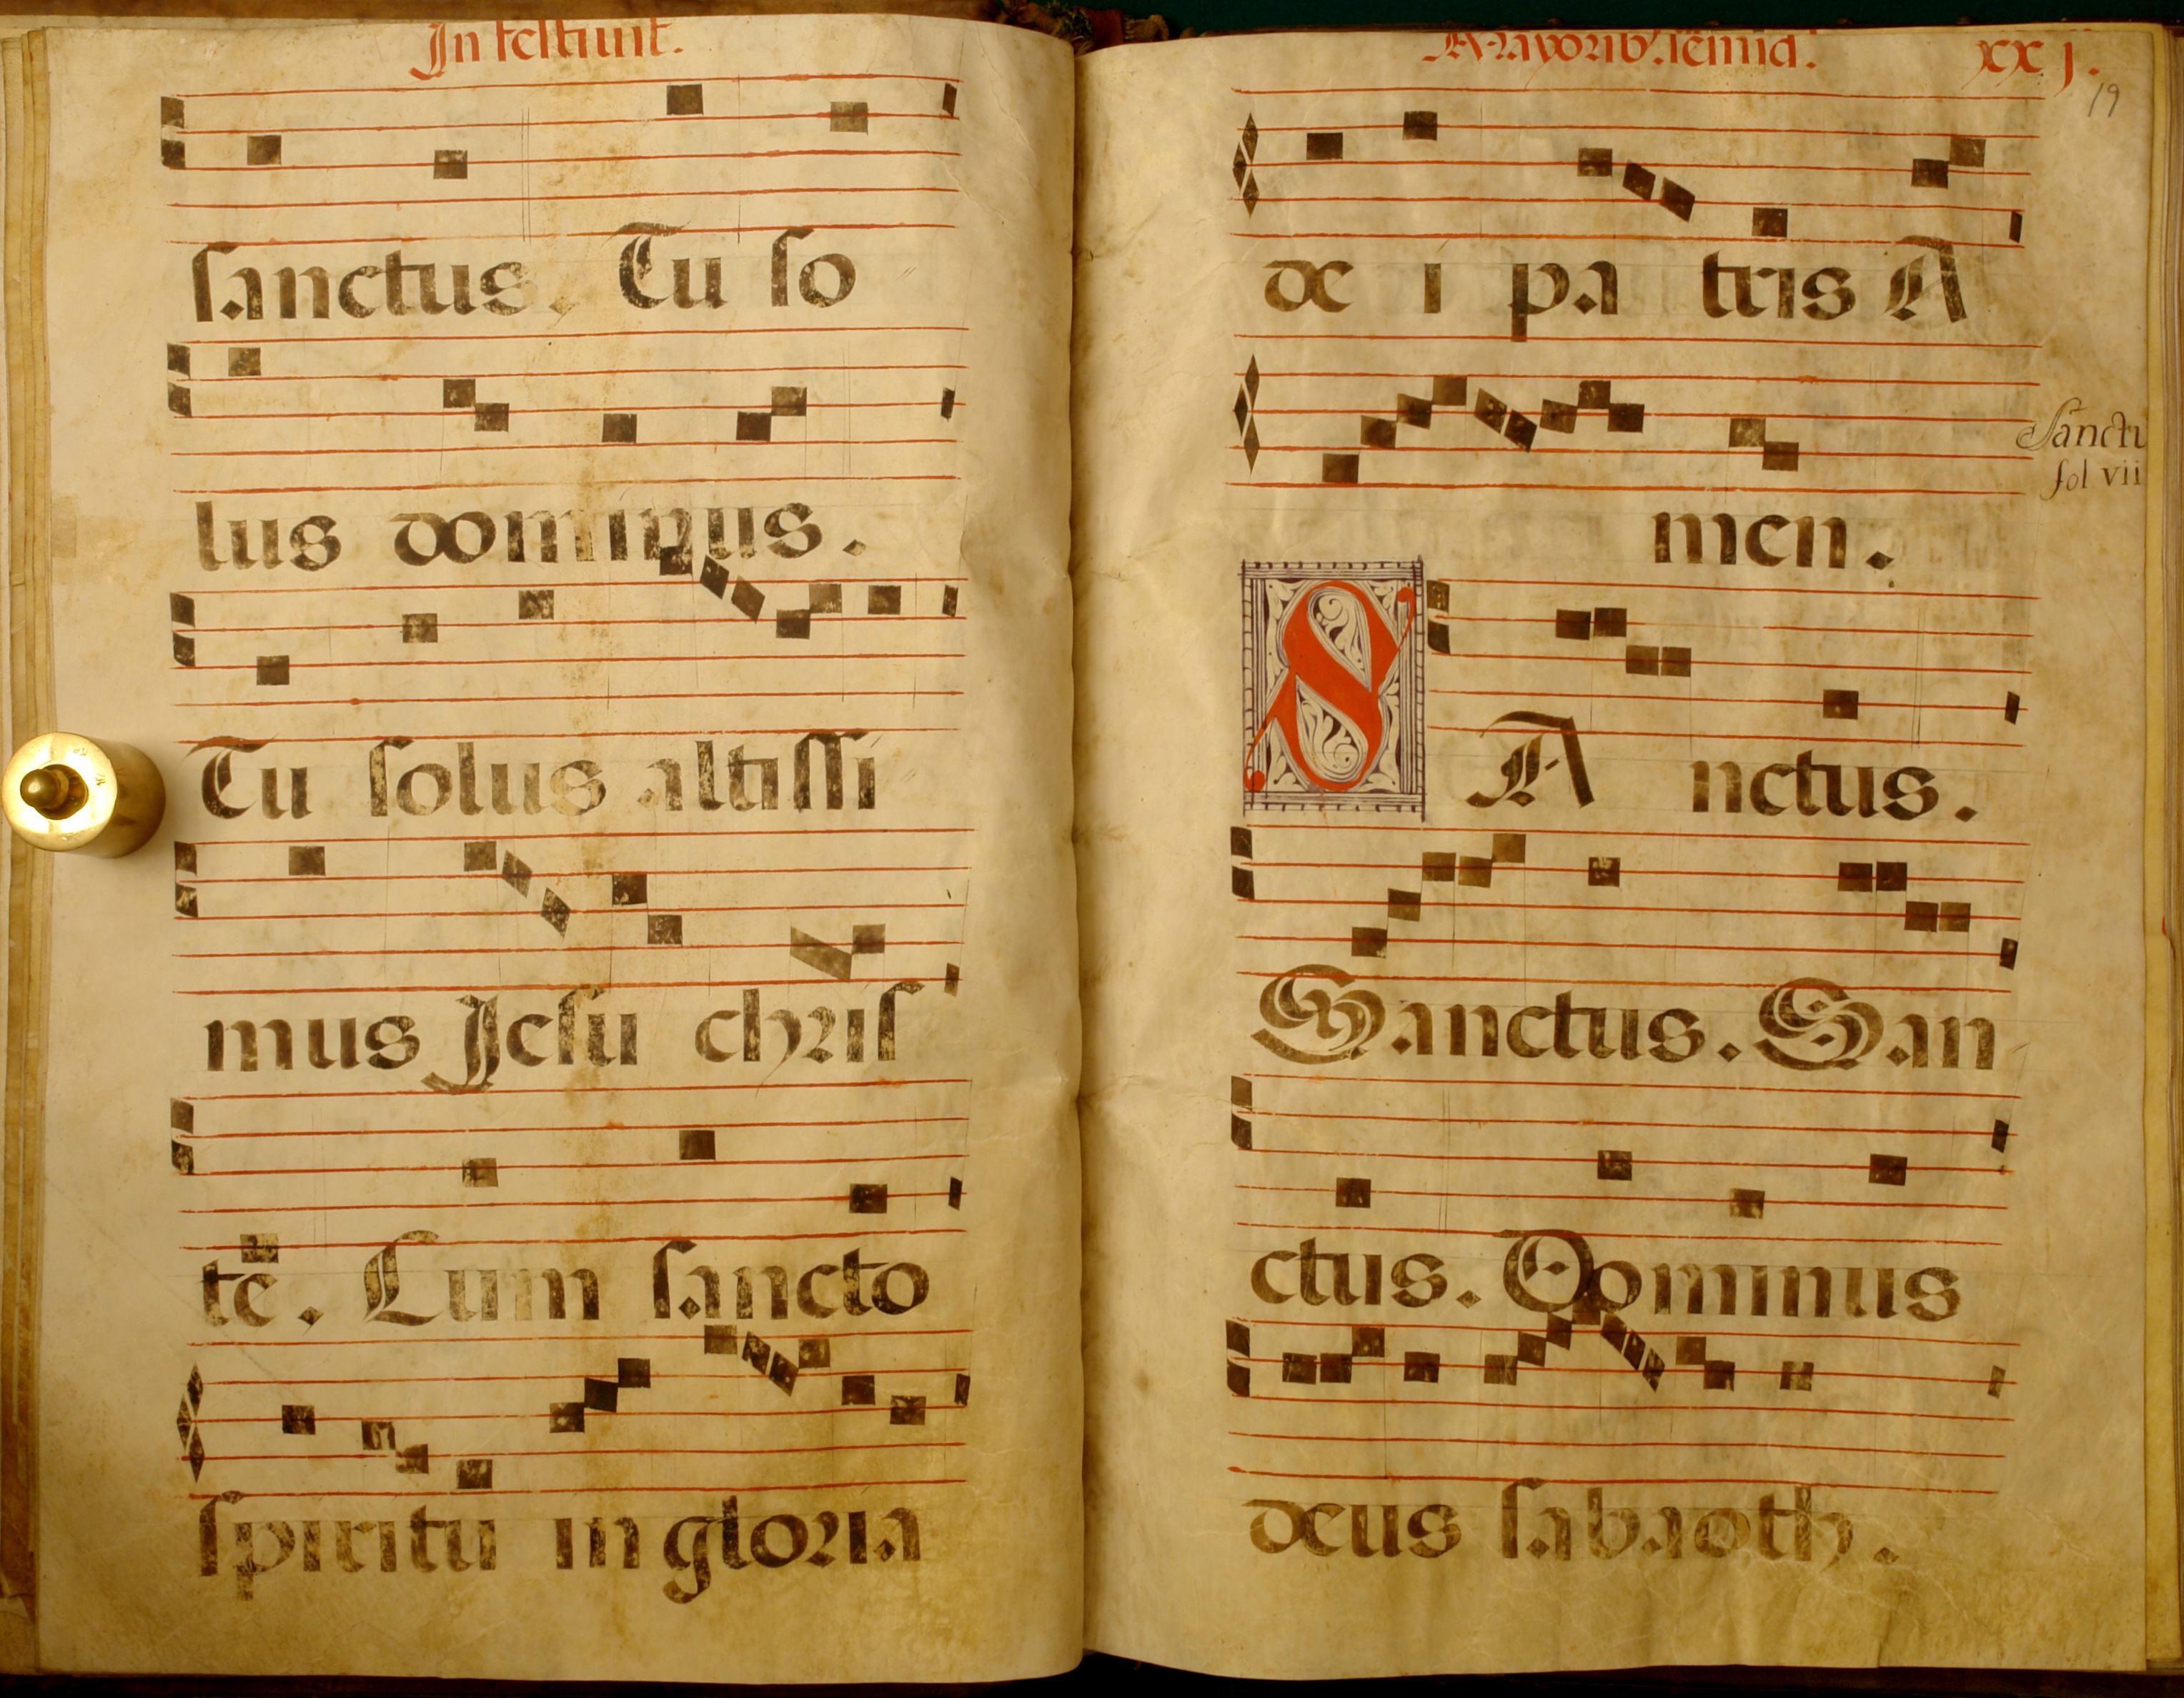 sanctus. Tu so
lus dominus.
Tu solus altissi
mus Jesu chris
te. Cum sancto
spiritu in gloria
xxj.
19
de i pa tris A
men.
Sanctu
fol vii
SA nctus.
Sanctus. San
ctus. Dominus
deus sabaoth.